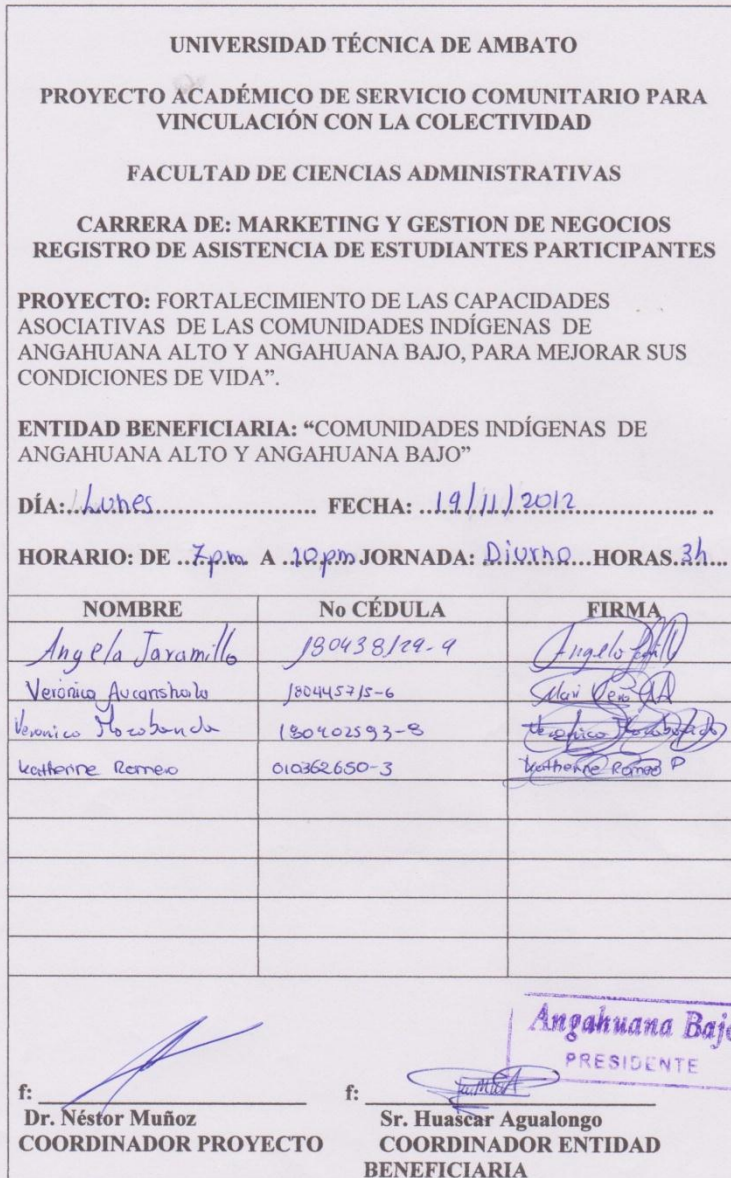 UNIVERSIDAD TÉCNICA DE AMBATO
PROYECTO ACADÉMICO DE SERVICIO COMUNITARIO PARA
VINCULACIÓN CON LA COLECTIVIDAD
FACULTAD DE CIENCIAS ADMINISTRATIVAS
CARRERA DE: MARKETING Y GESTION DE NEGOCIOS
REGISTRO DE ASISTENCIA DE ESTUDIANTES PARTICIPANTES
PROYECTO: FORTALECIMIENTO DE LAS CAPACIDADES
ASOCIATIVAS DE LAS COMUNIDADES INDÍGENAS DE
ANGAHUANA ALTO Y ANGAHUANA BAJO, PARA MEJORAR SUS
CONDICIONES DE VIDA”.
ENTIDAD BENEFICIARIA: “COMUNIDADES INDÍGENAS DE
ANGAHUANA ALTO Y ANGAHUANA BAJO”
DÍA: Lunes FECHA: 19/11/2012
HORARIO: DE 7pm A 10pm JORNADA: Diurno HORAS 3h
NOMBRE No CÉDULA FIRMA
Angela Jaramillo 180438129-9 Angela
Verónica 180445715-6
Veronica Morobanda 180402593-8 Veronica
Katherine Romero 010362650-3 Katherine Romero P
Angahuana Bajo
PRESIDENTE
f: f:
Dr. Néstor Muñoz Sr. Huascar Agualongo
COORDINADOR PROYECTO COORDINADOR ENTIDAD
BENEFICIARIA